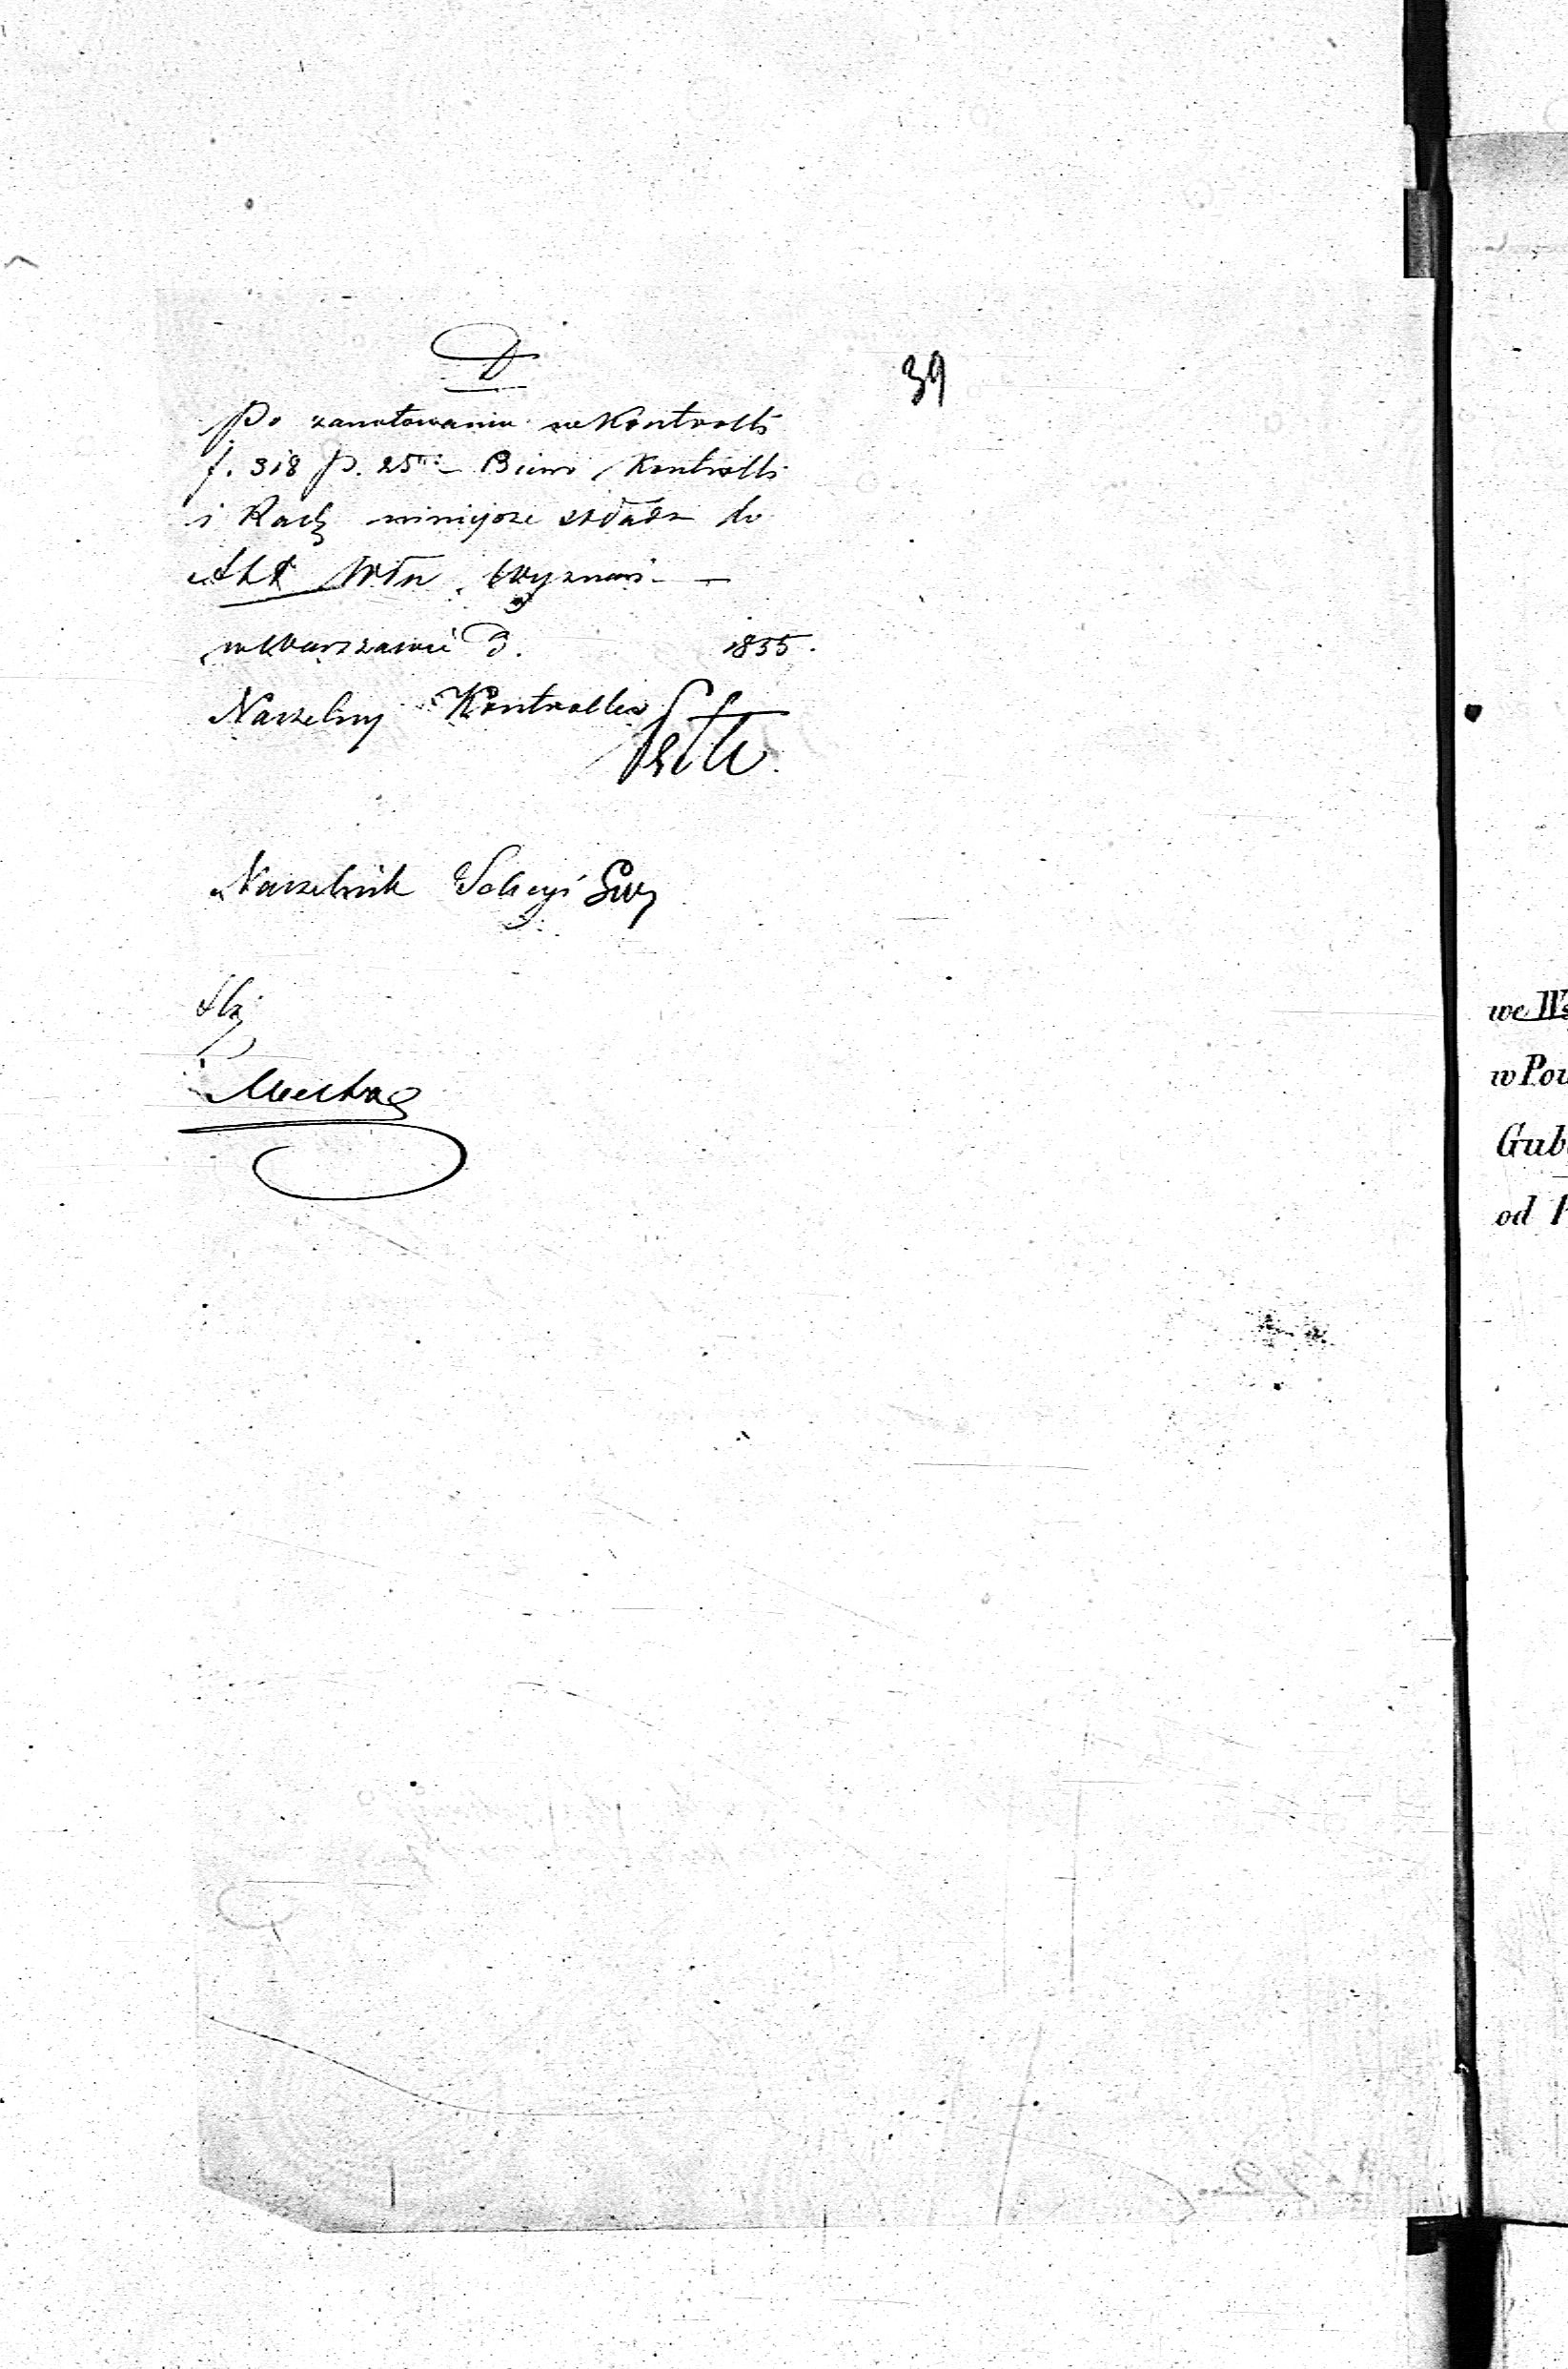 D
39
Po zanotowaniu w Kontrolli
f. 318 p. 25 Biuro Kontrolli
i Rach niniejsze składa do
Akt Wła Wyznań —
w Warszawie D. 1855.
Naczelny Kontroller
Naczelnik Sekcyi
we
w Pow
Gub
od